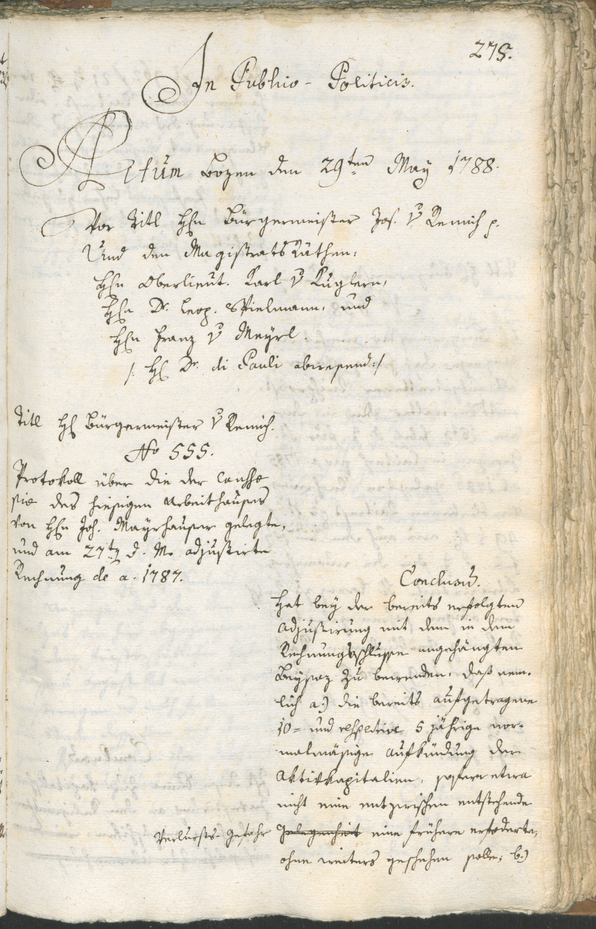 275.
In Publico-Politicis.
Actum Bozen den 29ten May 1788.
Vor Titl Hℓn Bürgermeister Jos. v Remich p.
Und den Magistratsräthen:
Hℓn Oberlieut. Karl v Kuglern,
Hℓn Dr. Leop. Spielmann, und
Hℓn Franz v Meyrl.
/: Hℓ Dr. di Pauli abwesend :/
Titl Hℓ Bürgermeister v Remich.
No 555.
Protokoll über die der Cauße
pie des hiesigen Arbeithauses
von Hℓn Joh. Mayrhauser gelegte,
und am 27ten d. M. adjustirte
Rechnung de a. 1787.
Conclusum.
Hat bey der bereits erfolgten
Adjustirung mit dem in dem
Rechnungsschlusse angehängten
Beysaz zu bewenden, daß nem-
lich a.) die bereits aufgetragene
10- und respective 5 jährige nor-
malmäßige Aufkündung der
Aktivkapitalien, sofern etwa
nicht eine entzwischen entstehende
Verlursts-Gefahr eine frühere erfoderte,
ohne weiters geschehen solle; b.)